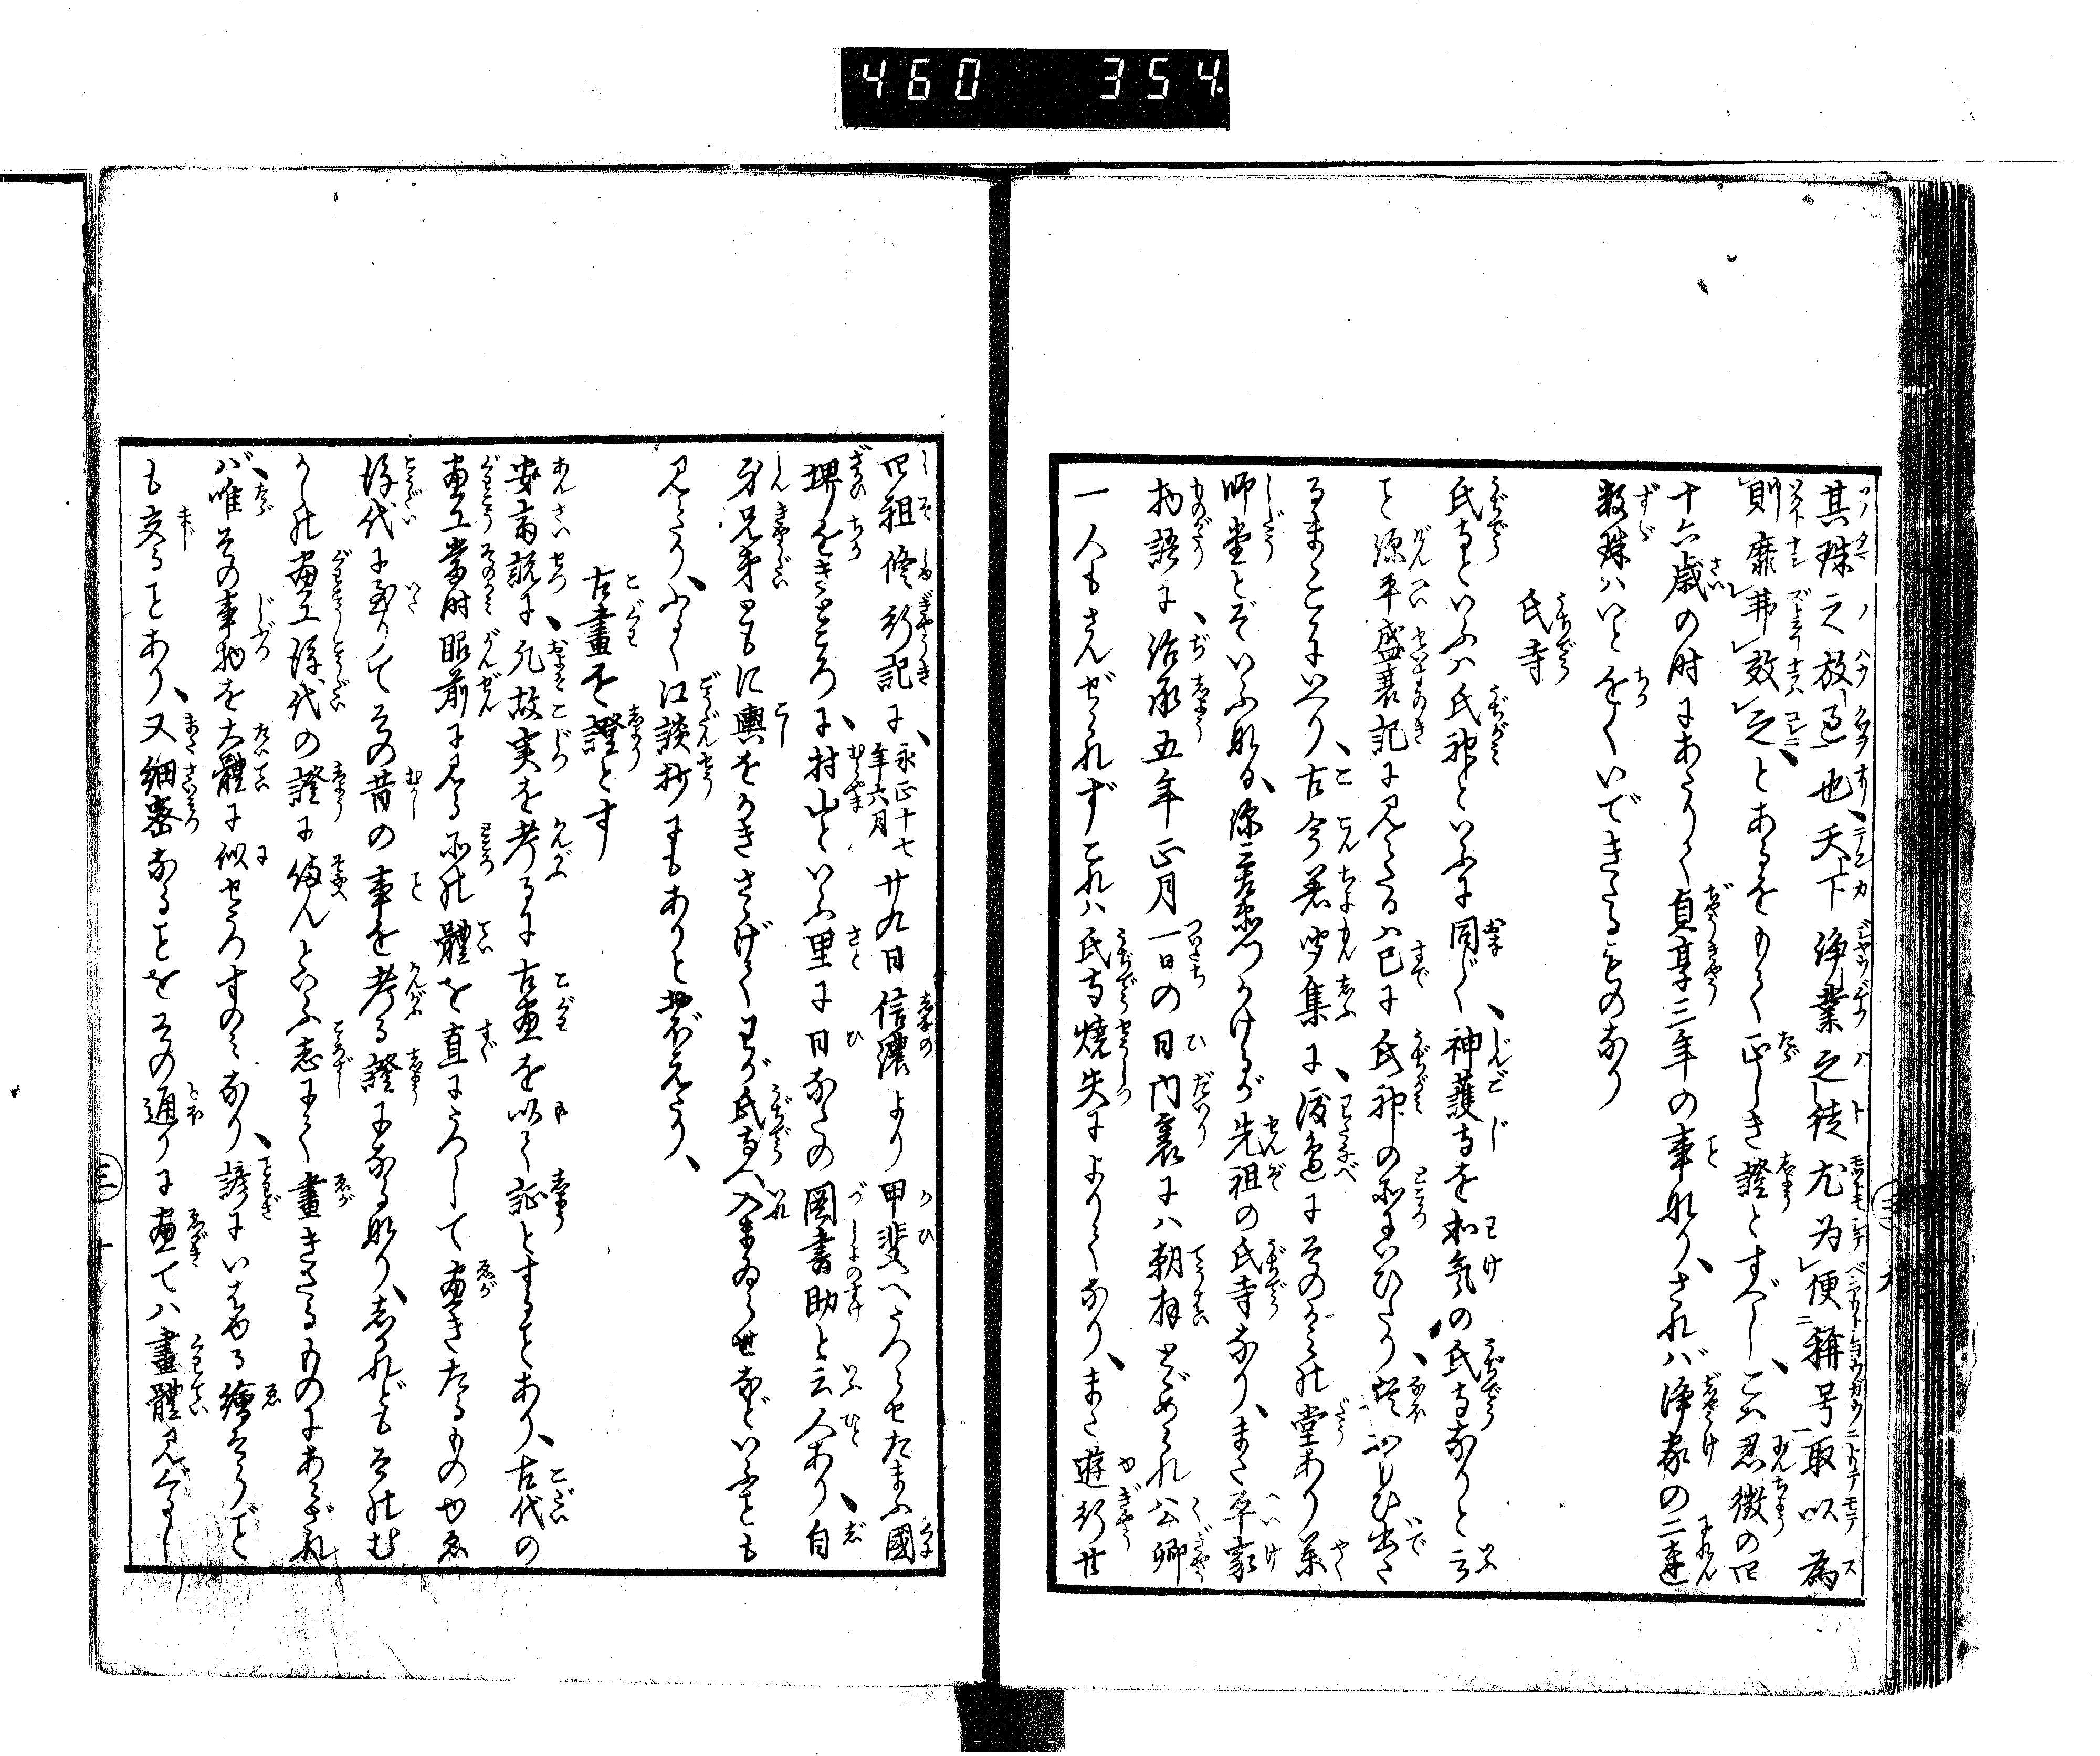 460 354.
其珠之放逸也天下浄業之徒尤為便稱号取以為
則靡弗效之、とあるをもて正しき證とすべし、こは忍徴の四
十六歳の時にあたりて貞享三年の事なり、されば浄家の二連
数珠はいとちかくいできたるものなり
氏寺
氏寺といふは氏神といふに同じく、神護寺を和氣の氏寺なりと云
こと源平盛衰記に見えたるは已に氏神の所にいひたり、猶おもひ出た
るまゝこゝにいへり、古今著聞集に、渡邉にそのかみの堂あり薬
師堂とぞいふなる、源三左衛門かけるが先祖の氏寺なり、また平家
物語に、治承五年正月一日の日内裏には朝拝とゞめられ公卿
一人もさんぜられずこれは氏寺焼失によりてなり、また遊行廿
四祖修行記に、永正十七年六月廿九日信濃より甲斐へうつらせたまふ國
堺をきところに、村山といふ里に日なたの図書助と云人あり、自
身兄弟ともに輿をかきさゝげてわが氏寺へ入まゐらせなどいふことも
見えたり、ふるく江談抄にもありと覚えたり、
古畫を證とす
安斎説に、凡故実を考るに古畫を以て証とすることあり、古代の
画工當時眼前に見る所の體を直にうつして画きたるものゆゑ
後代に至りてその昔の事を考る證になるなり、しかれどもそのむ
かしの画工後代の證に備んといふ志にて畫きたるものにあらざれ
ば、唯その事物を大體に似せうつすのみなり、諺にいはゆる繪そらごと
も交ることあり、又細密なることをその通りに画ては畫體見ぐるし